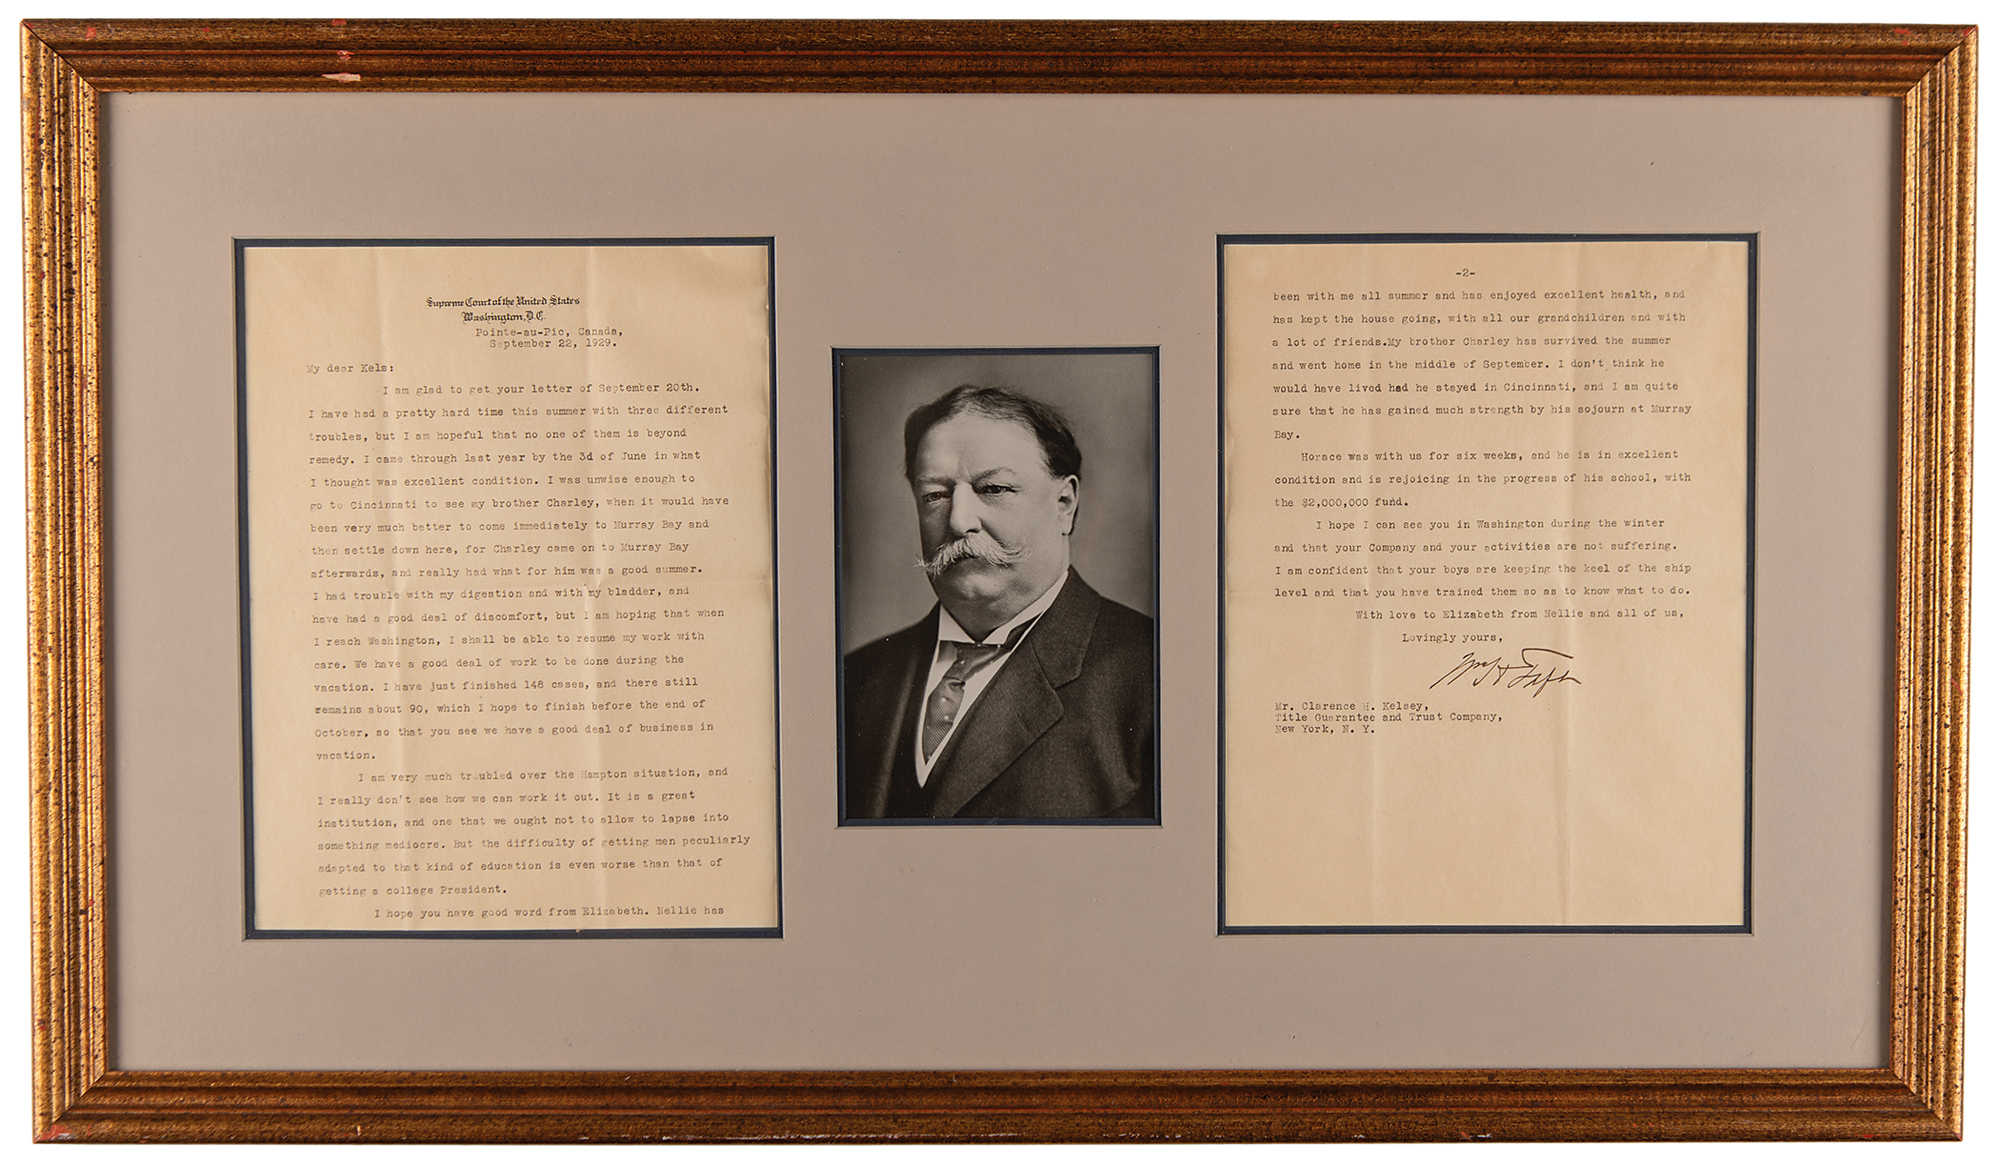 Supreme Court of the United States
Washington, D.C.
Pointe-au-Pic, Canada,
September 22, 1929.
My dear Kels:
I am glad to get your letter of September 20th.
I have had a pretty hard time this summer with three different
troubles, but I am hopeful that no one of them is beyond
remedy. I came through last year by the 3d of June in what
I thought was excellent condition. I was unwise enough to
go to Cincinnati to see my brother Charley, when it would have
been very much better to come immediately to Murray Bay and
then settle down here, for Charley came on to Murray Bay
afterwards, and really had what for him was a good summer.
I had trouble with my digestion and with my bladder, and
have had a good deal of discomfort, but I am hoping that when
I reach Washington, I shall be able to resume my work with
care. We have a good deal of work to be done during the
vacation. I have just finished 148 cases, and there still
remains about 90, which I hope to finish before the end of
October, so that you see we have a good deal of business in
vacation.
I am very much troubled over the Hampton situation, and
I really don't see how we can work it out. It is a great
institution, and one that we ought not to allow to lapse into
something mediocre. But the difficulty of getting men peculiarly
adapted to that kind of education is even worse than that of
getting a college President.
I hope you have good word from Elizabeth. Nellie has
-2-
been with me all summer and has enjoyed excellent health, and
has kept the house going, with all our grandchildren and with
a lot of friends.My brother Charley has survived the summer
and went home in the middle of September. I don't think he
would have lived had he stayed in Cincinnati, and I am quite
sure that he has gained much strength by his sojourn at Murray
Bay.
Horace was with us for six weeks, and he is in excellent
condition and is rejoicing in the progress of his school, with
the $2,000,000 fund.
I hope I can see you in Washington during the winter
and that your Company and your activities are not suffering.
I am confident that your boys are keeping the keel of the ship
level and that you have trained them so as to know what to do.
With love to Elizabeth from Nellie and all of us,
Lovingly yours,
Wm H Taft
Mr. Clarence H. Kelsey,
Title Guarantee and Trust Company,
New York, N. Y.